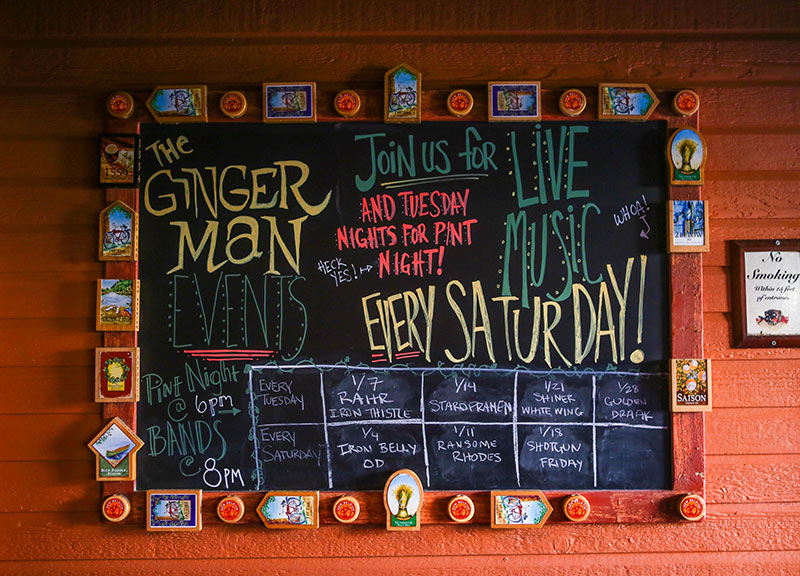 THE
GINGER
MAN
EVENTS
JOIN US for
LIVE
MUSIC
AND TUESDAY
NIGHTS FOR PINT
NIGHT!
HECK
YES!
WHOA!
EVERY SATURDAY!
Pint Night
@ 6pm
BANDS
@ 8pm
EVERY
TUESDAY
1/7
RAHR
IRON THISTLE
1/14
STAROPRAMEN
1/21
SHINER
WHITE WING
1/28
GOLDEN
DRAAK
EVERY
SATURDAY
1/4
IRON BELLY
OD
1/11
RANSOME
RHODES
1/18
SHOTGUN
FRIDAY
SAISON
No
Smoking
Within 15 feet
of entrance